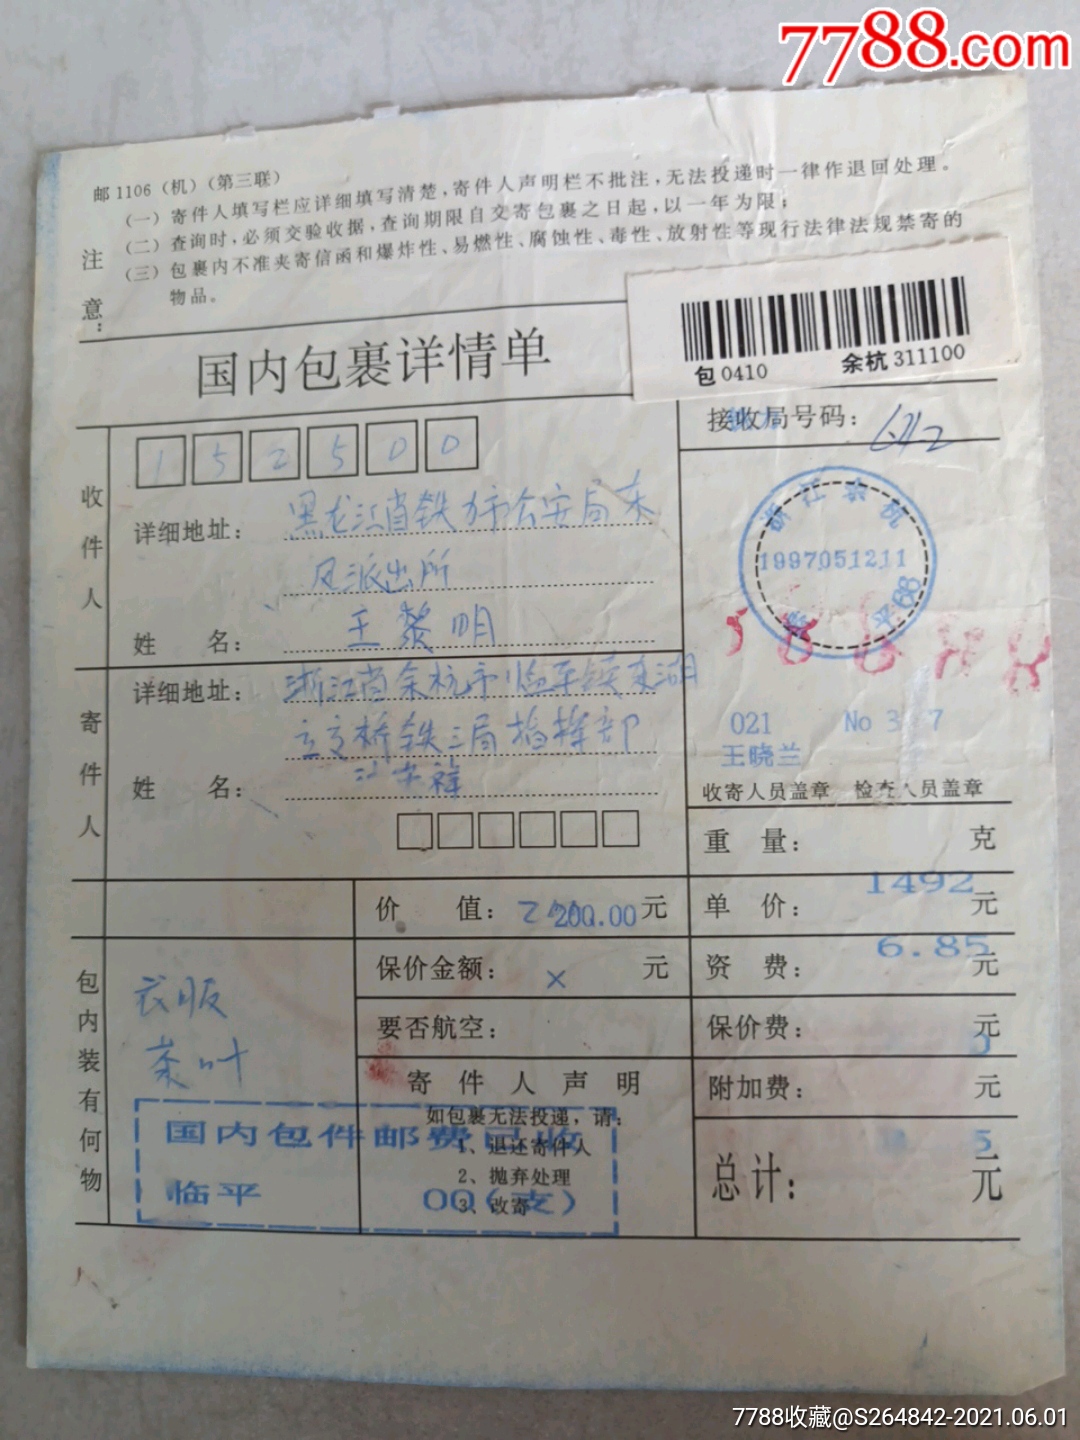 7788.com
邮1106（机）（第三联）
注意：
（一）寄件人填写栏应详细填写清楚，寄件人声明栏不批注，无法投递时一律作退回处理。
（二）查询时，必须交验收据，查询期限自交寄包裹之日起，以一年为限；
（三）包裹内不准夹寄信函和爆炸性、易燃性、腐蚀性、毒性、放射性等现行法律法规禁寄的
物品。
包0410 余杭311100
国内包裹详情单
接收局号码：
152500
收件人
详细地址：黑龙江省铁力市公安局东
风派出所
姓 名：王黎明
浙江余杭
1997051211
临平
寄件人
详细地址：浙江省余杭市临平镇东湖
立交桥铁三局指挥部
姓 名：
021 No 3 7
王晓兰
收寄人员盖章 检查人员盖章
重 量： 克
1492
价 值： 200.00 元
单 价： 元
6.85
保价金额： × 元
资 费： 元
包内装有何物
衣服
茶叶
要否航空：
保价费： 元
寄件人声明
附加费： 元
如包裹无法投递，请：
1、退还寄件人
2、抛弃处理
3、改寄
国内包件邮费已收
临平 00(支)
总计： 元
5
7788收藏@S264842-2021.06.01